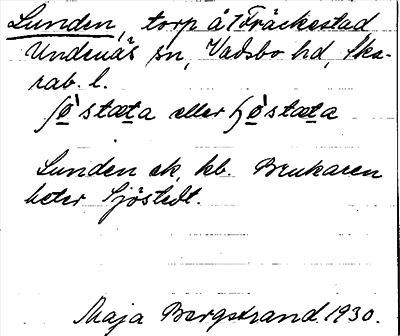 Lunden, torp å 7 Fräckestad
Undenäs sn, Vadsbo hd, Ska-
rab. l.
ʃø̀stæta eller ɧø̀stæta
Lunden ek. kb. Brukaren
heter Sjöstedt.
Maja Bergstrand. 1930.